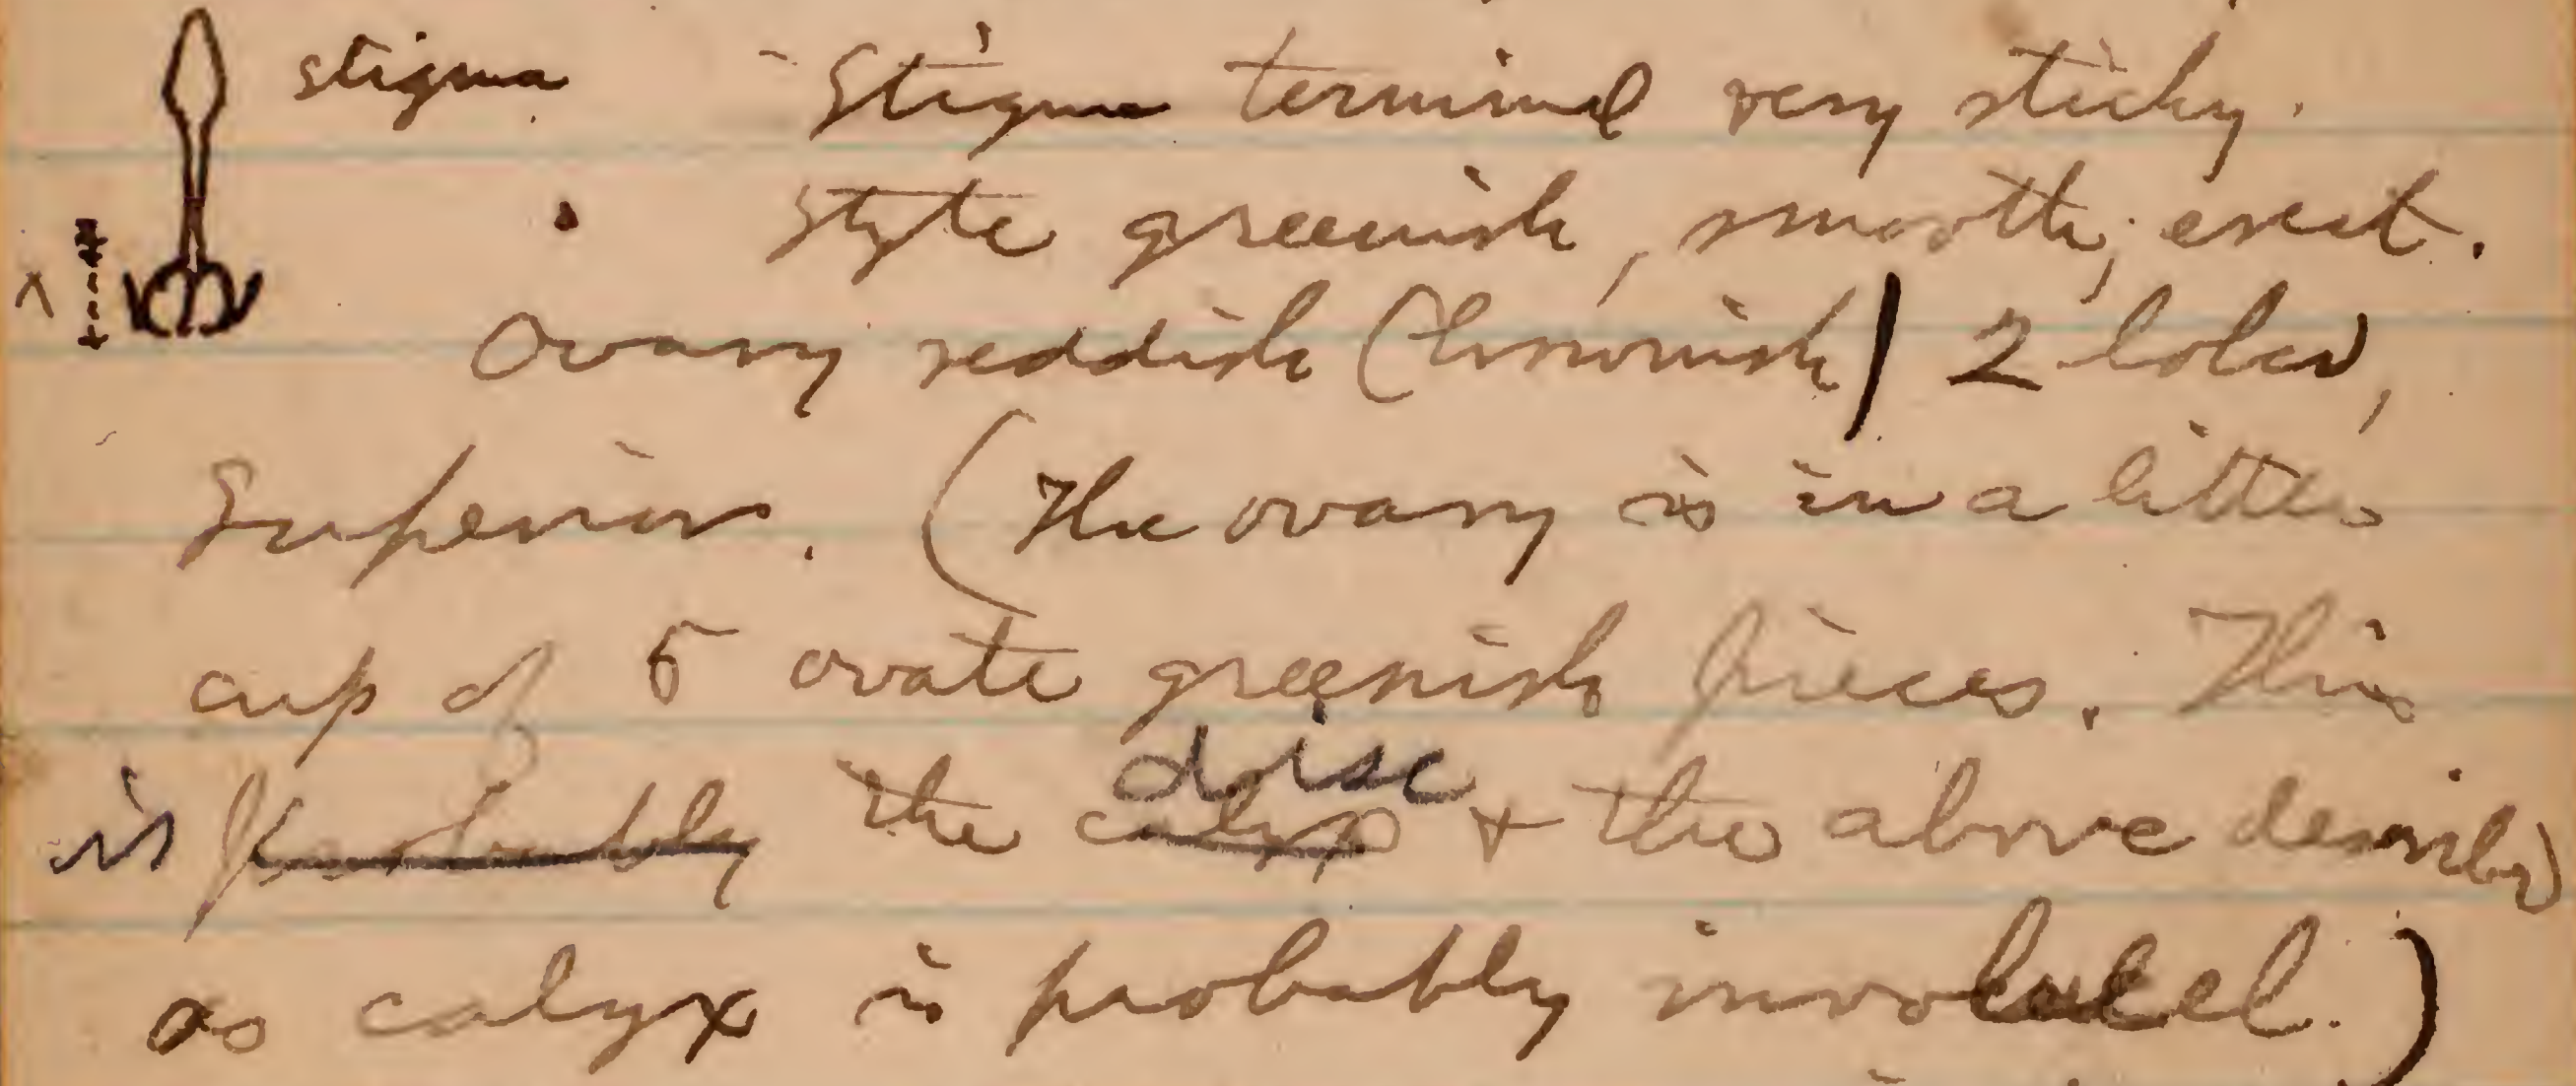 stigma Stigma terminal very sticky.
Style greenish, smooth, erect.
Ovary reddish (brownish) 2 lobed,
Superior. (The ovary is in a little
cup of 5 ovate greenish pieces. This
disc
is probably the calyx & the above described
as calyx is probably involucel.)